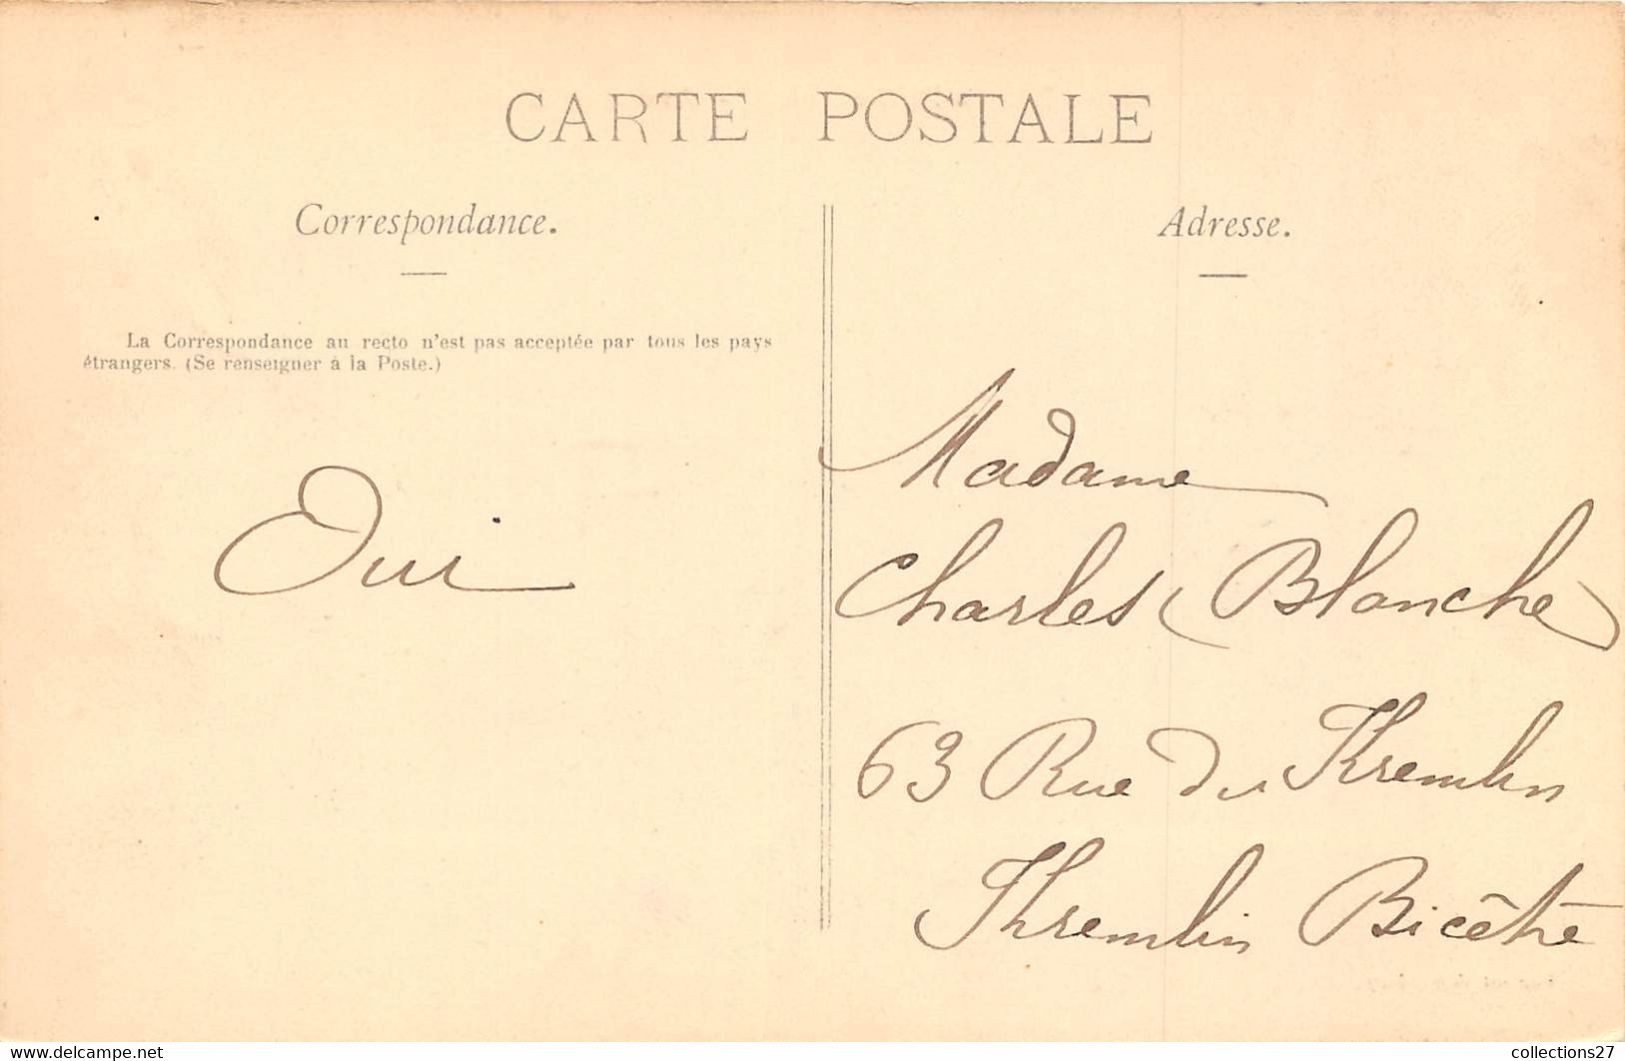 CARTE POSTALE
Correspondance.
La Correspondance au recto n'est pas acceptée par tous les pays
étrangers. (Se renseigner à la Poste.)
Oui
Adresse.
Madame
Charles Blanche
63 Rue du Kremlin
Kremlin Bicêtre
www.delcampe.net
collections27